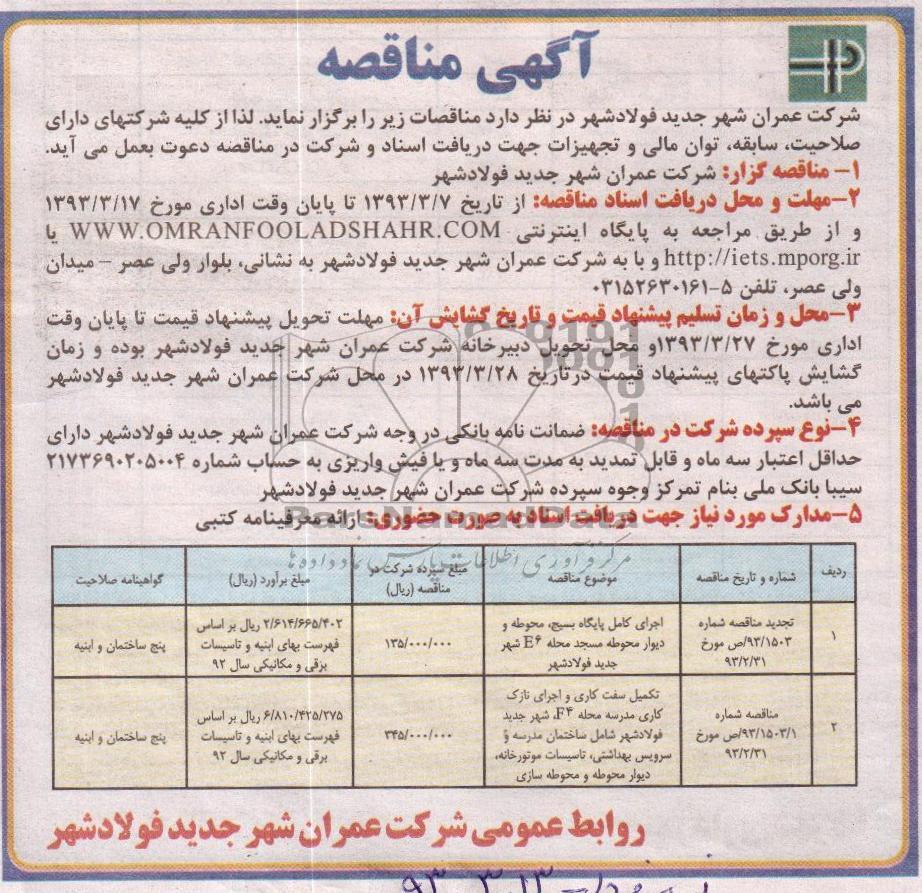 آگهی مناقصه
شرکت عمران شهر جدید فولادشهر در نظر دارد مناقصات زیر را برگزار نماید. لذا از کلیه شرکتهای دارای
صلاحیت، سابقه، توان مالی و تجهیزات جهت دریافت اسناد و شرکت در مناقصه دعوت بعمل می آید.
۱- مناقصه گزار: شرکت عمران شهر جدید فولادشهر
۲-مهلت و محل دریافت اسناد مناقصه: از تاریخ ۱۳۹۳/۳/۷ تا پایان وقت اداری مورخ ۱۳۹۳/۳/۱۷
و از طریق مراجعه به پایگاه اینترنتی WWW.OMRANFOOLADSHAHR.COM یا
http://iets.mporg.ir و یا به شرکت عمران شهر جدید فولادشهر به نشانی، بلوار ولی عصر – میدان
ولی عصر، تلفن ۵-۰۳۱۵۲۶۳۰۱۶۱
۳-محل و زمان تسلیم پیشنهاد قیمت و تاریخ گشایش آن: مهلت تحویل پیشنهاد قیمت تا پایان وقت
اداری مورخ ۱۳۹۳/۳/۲۷و محل تحویل دبیرخانه شرکت عمران شهر جدید فولادشهر بوده و زمان
گشایش پاکتهای پیشنهاد قیمت درتاریخ ۱۳۹۳/۳/۲۸ در محل شرکت عمران شهر جدید فولادشهر
می باشد.
۴-نوع سپرده شرکت در مناقصه: ضمانت نامه بانکی در وجه شرکت عمران شهر جدید فولادشهر دارای
حداقل اعتبار سه ماه و قابل تمدید به مدت سه ماه و یا فیش واریزی به حساب شماره ۲۱۷۳۶۹۰۲۰۵۰۰۴
سیبا بانک ملی بنام تمرکز وجوه سپرده شرکت عمران شهر جدید فولادشهر
ParsNamadData
۵-مدارک مورد نیاز جهت دریافت اسناد به صورت حضوری: ارائه معرفینامه کتبی
مرکز فرآوری اطلاعات پارس نماد داده ها
ردیف شماره و تاریخ مناقصه موضوع مناقصه مبلغ سپرده شرکت در مناقصه (ریال) مبلغ برآورد (ریال) گواهینامه صلاحیت
۱ تجدید مناقصه شماره ۹۳/۱۵۰۳/ص مورخ ۹۳/۲/۳۱ اجرای کامل پایگاه بسیج، محوطه و دیوار محوطه مسجد محله E۶ شهر جدید فولادشهر ۱۳۵/۰۰۰/۰۰۰ ۲/۶۱۴/۶۶۵/۴۰۲ ریال بر اساس فهرست بهای ابنیه و تاسیسات برقی و مکانیکی سال ۹۲ پنج ساختمان و ابنیه
۲ مناقصه شماره ۹۳/۱۵۰۳/۱/ص مورخ ۹۳/۲/۳۱ تکمیل سفت کاری و اجرای نازک کاری مدرسه محله F۴، شهر جدید فولادشهر شامل ساختمان مدرسه و سرویس بهداشتی، تاسیسات موتورخانه، دیوار محوطه و محوطه سازی ۳۴۵/۰۰۰/۰۰۰ ۶/۸۱۰/۴۲۵/۲۷۵ ریال بر اساس فهرست بهای ابنیه و تاسیسات برقی و مکانیکی سال ۹۲ پنج ساختمان و ابنیه
روابط عمومی شرکت عمران شهر جدید فولادشهر